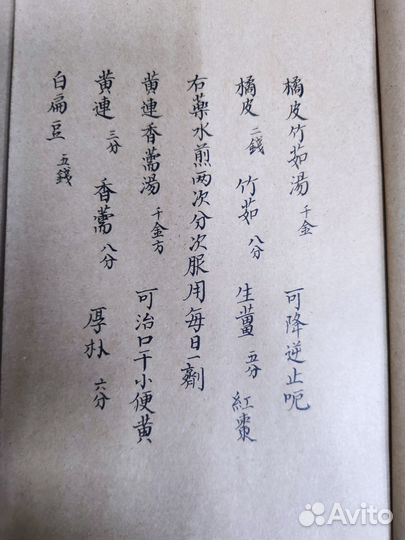 橘皮竹茹湯 千金 可降逆止呃
橘皮 二錢 竹茹 八分 生薑 五分 紅棗
右藥水煎两次分次服用每日一劑
黄連香薷湯 千金方 可治口干小便黄
黄連 三分 香薷 八分 厚朴 六分
白扁豆 五錢
Avito